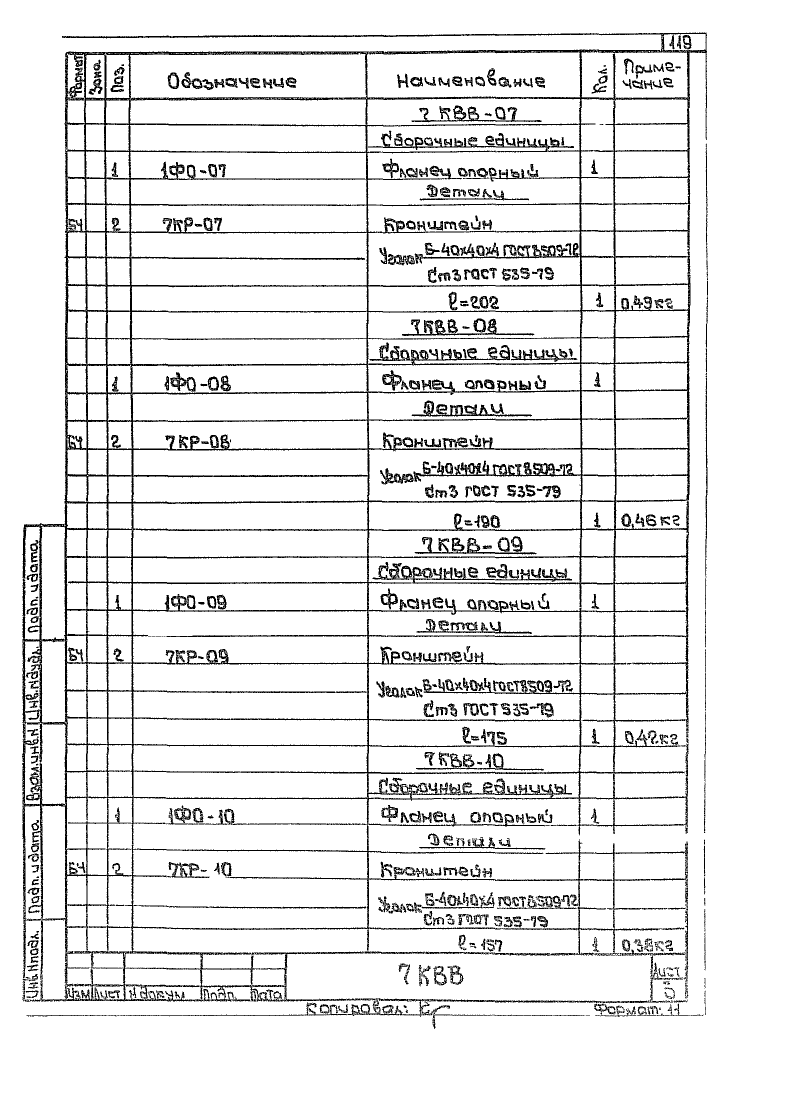 119
Формат Зона Поз. Обозначение Наименование Кол. Приме-
чание
7 КВВ-07
Сборочные единицы
1 1ФО-07 Фланец опорный 1
Детали
БЧ 2 7КР-07 Кронштейн
Уголок Б-40х40х4 ГОСТ 8509-72
Ст3 ГОСТ 535-79
ℓ=202 1 0,49кг
7КВВ-08
Сборочные единицы
1 1ФО-08 Фланец опорный 1
Детали
БЧ 2 7КР-08 Кронштейн
Уголок Б-40х40х4 ГОСТ 8509-72
Ст3 ГОСТ 535-79
ℓ=190 1 0,46кг
7КВВ-09
Сборочные единицы
1 1ФО-09 Фланец опорный 1
Детали
БЧ 2 7КР-09 Кронштейн
Уголок Б-40х40х4 ГОСТ 8509-72
Ст3 ГОСТ 535-79
ℓ=175 1 0,42кг
7КВВ-10
Сборочные единицы
1 1ФО-10 Фланец опорный 1
Детали
БЧ 2 7КР-10 Кронштейн
Уголок Б-40х40х4 ГОСТ 8509-72
Ст3 ГОСТ 535-79
ℓ=157 1 0,38кг
Инв.Nподл. Подп. и дата Взам.инв.N Инв.Nдубл. Подп. и дата
7 КВВ
Лист
5
Изм Лист N докум Подп. Дата
Копировал:
Формат: 11